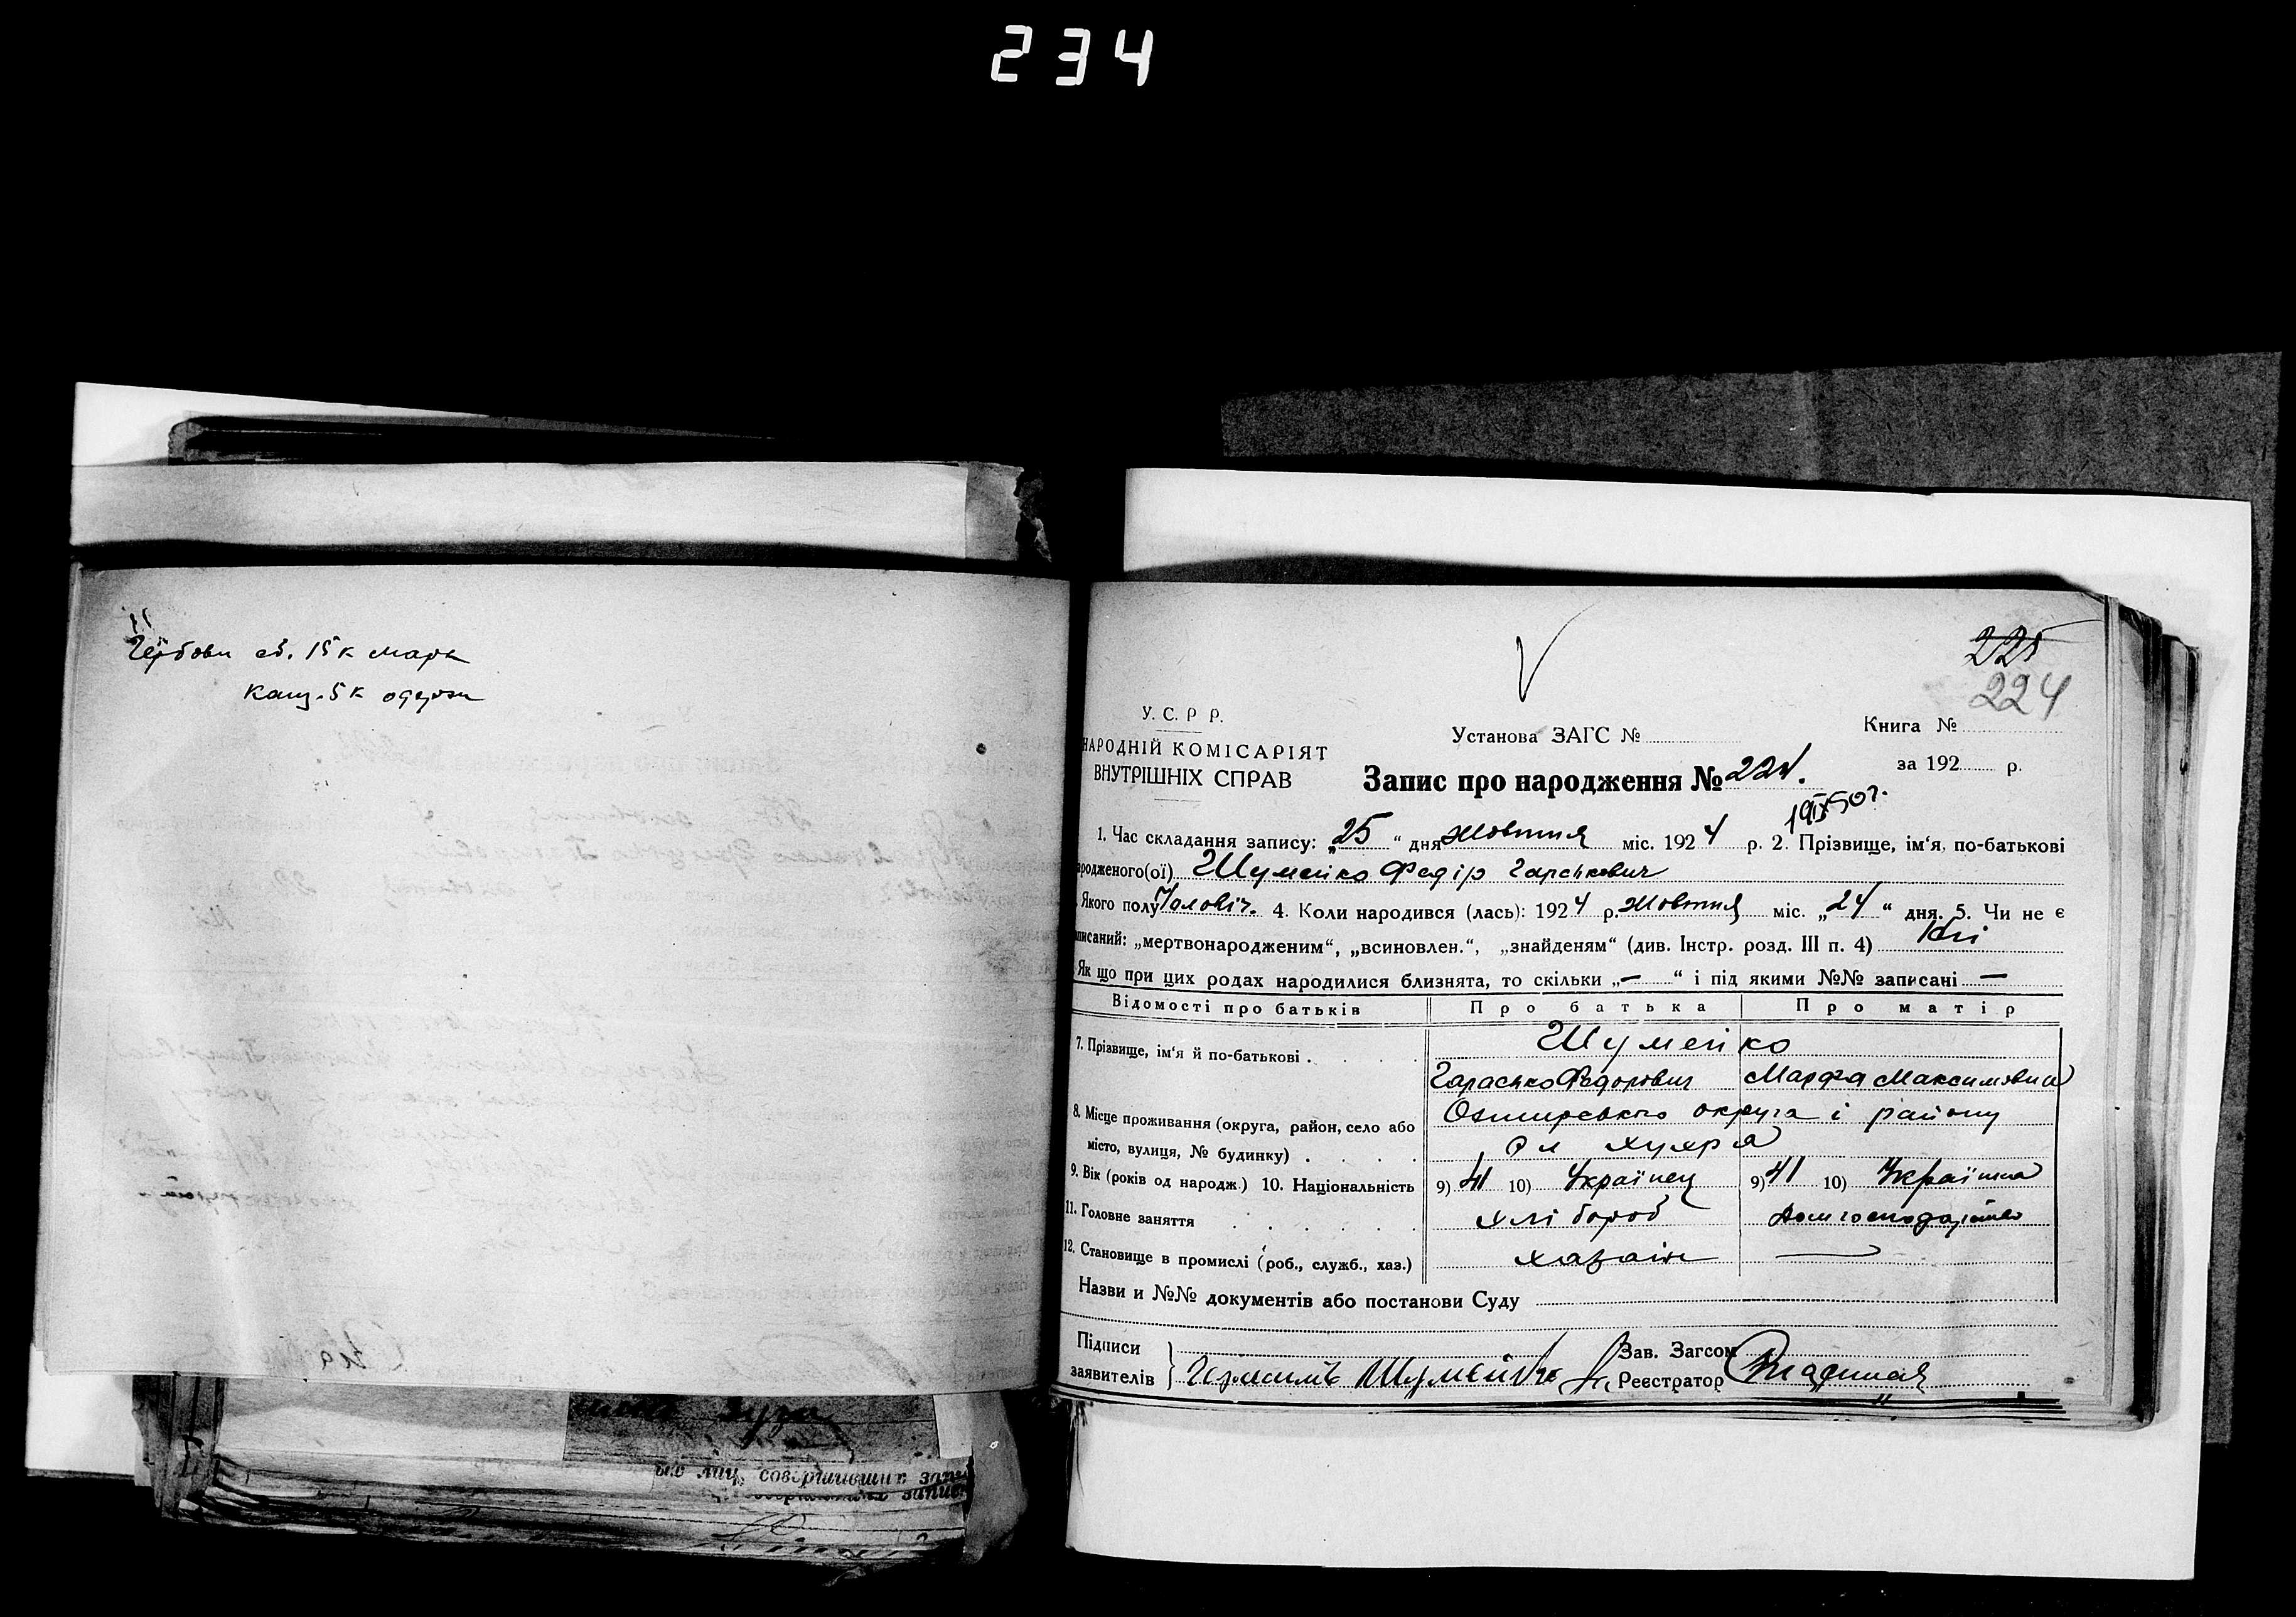 234
Гербови зб. 15 к марк
канц. 5 к одержи
225
224
У. С. Р Р.
НАРОДНІЙ КОМІСАРІЯТ
ВНУТРІШНІХ СПРАВ
Установа ЗАГС №
Книга №
за 192 р.
Запис про народження № 224.
19IX50г.
1. Час складання запису: „25“ дня Жовтня міс. 1924 р. 2. Прізвище, ім‘я, по-батькові
народженого(ої) Шумейко Федір Гарашкович
Якого полу Чоловіч. 4. Коли народився (лась): 1924 р. Жовтня міс. „24“ дня. 5. Чи не є
записаний: „мертвонародженим“, „всиновлен.“, „знайденям“ (див. Інстр. розд. III п. 4) Ні
Як що при цих родах народилися близнята, то скільки „—“ і під якими №№ записані —
Відомості про батьків Про батька Про матір
7. Прізвище, ім‘я й по-батькові . Шумейко
Гарасько Федорович Марфа Максимовна
8. Місце проживання (округа, район, село або Охтирського округа і району
місто, вулиця, № будинку) . сл хухра
9. Вік (років од народж.) 10. Національність 9) 41 10) Українец 9) 41 10) Українка
11. Головне заняття хлібороб Домгосподарство
12. Становище в промислі (роб., служб., хаз.) хазаін —
Назви и №№ документів або постанови Суду
Підписи
заявителів Герасимъ Шумейко
Зав. Загсом
Реєстратор
ых лиц, совершивших запи